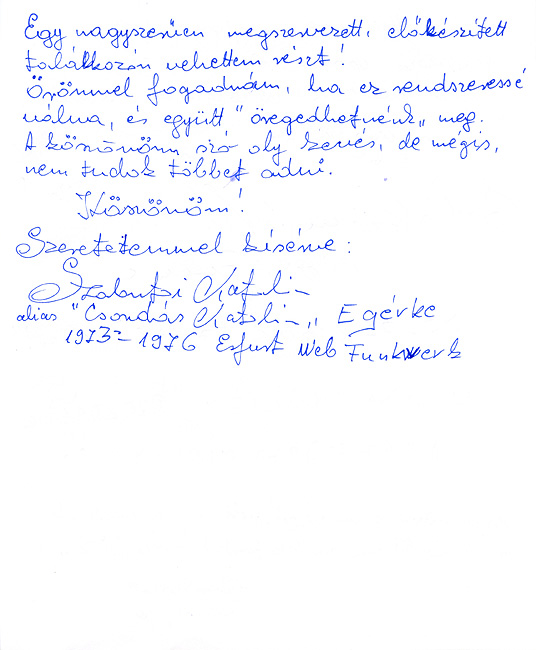 Egy nagyszerűen megszervezett, előkészített
találkozón vehettem részt!
Örömmel fogadnám, ha ez rendszeressé
válna, és együtt "öregedhetnénk" meg.
A köszönöm szó oly kevés, de mégis,
nem tudok többet adni.
Köszönöm!
Szeretetemmel kísérve:
Katalin
alias "Csordás Katalin" Egérke
1973-1976 Erfurt Web Funkwerk